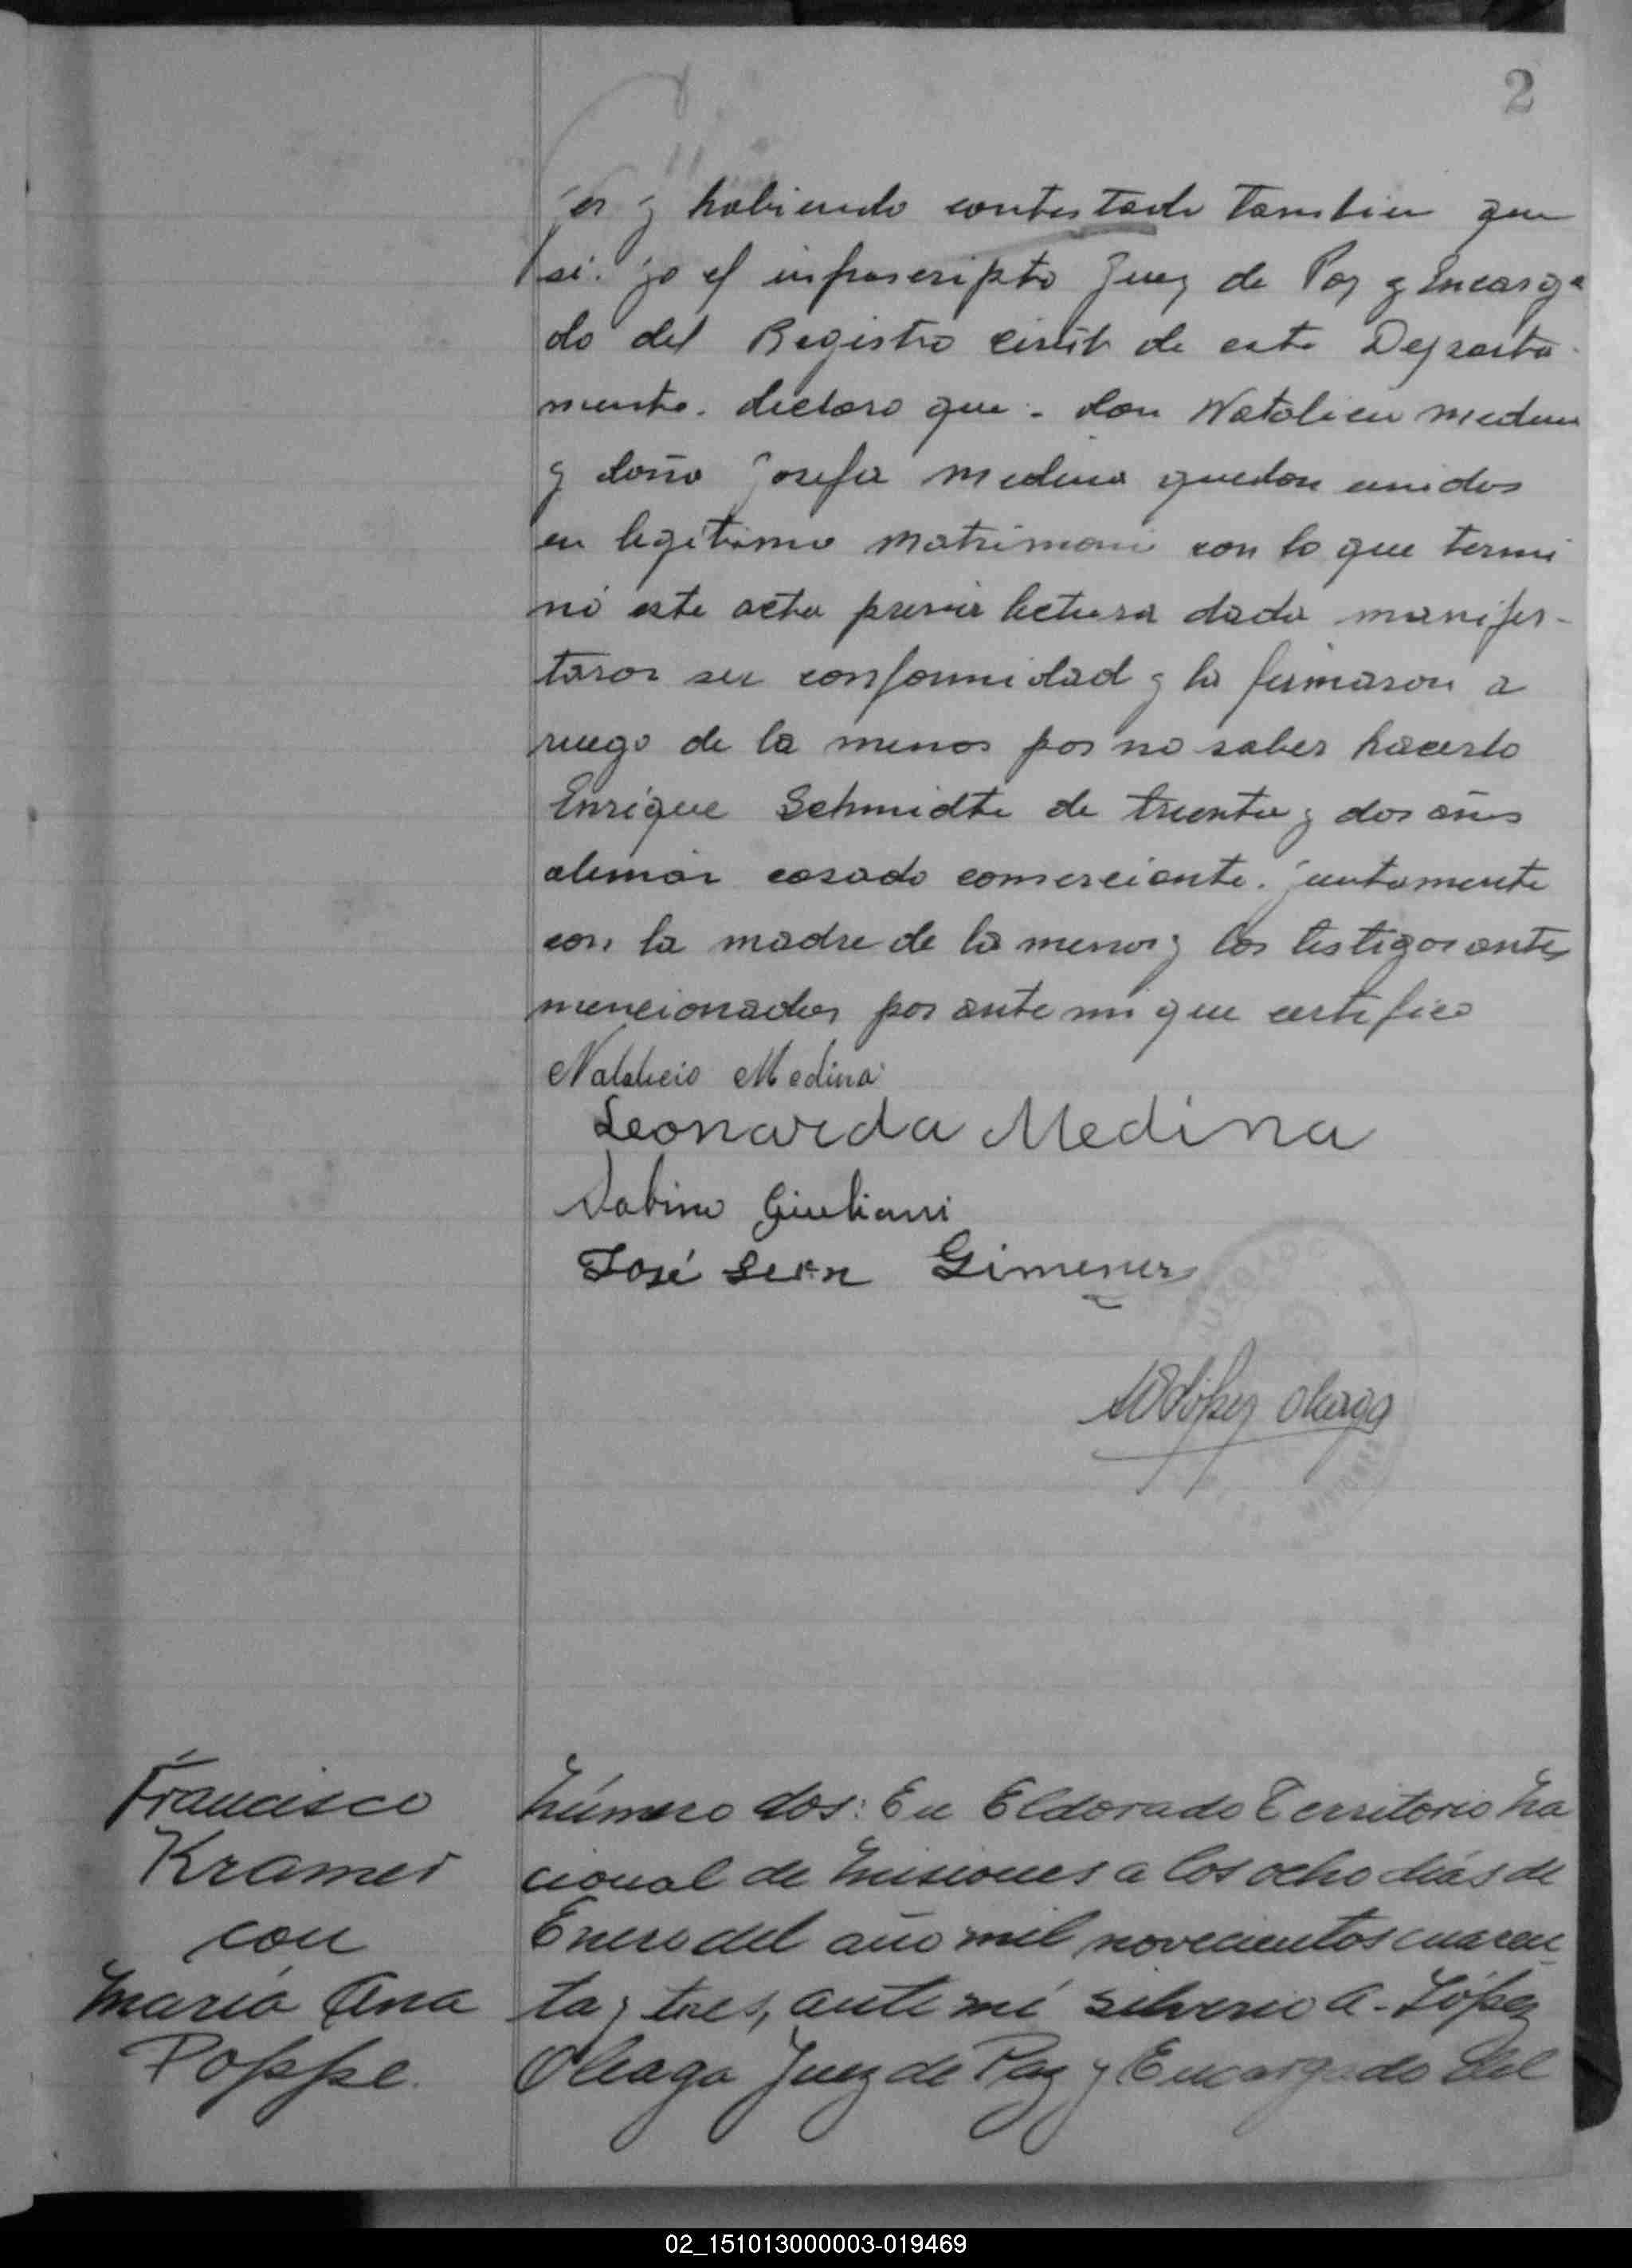 2
y habiendo contestado tambien que
si. yo el infrascripto Juez de Paz y Encarga
do del Registro civil de este Departa
mento. declaro que. don Natalicio Medina
y doña Josefa Medina quedan unidos
en legitimo matrimonio con lo que termi
nó este acta previa lectura dada manifes-
taron su conformidad y la firmaron a
ruego de la menor por no saber hacerlo
Enrique Schmidte de treinta y dos años
alemán casado comerciante. juntamente
con la madre de la menor y los testigos antes
mencionados por ante mi que certifico
Natalicio Medina
Leonarda Medina
Sabino Giuliani
José León Gimenez
López Oleaga
Francisco
Kramer
con
María Ana
Poppe.
Número dos: En Eldorado Territorio Na
cional de Misiones a los ocho días de
Enero del año mil novecientos cuaren
ta y tres, ante mí Silverio A. López
Oleaga Juez de Paz y Encargado del
02_151013000003-019469